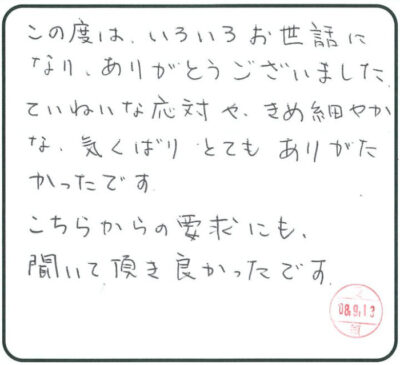 この度は、いろいろお世話に
なり、ありがとうございました.
ていねいな応対や、きめ細やか
な、気くばりとてもありがた
かったです.
こちらからの要求にも、
聞いて頂き良かったです.
'08.9.13